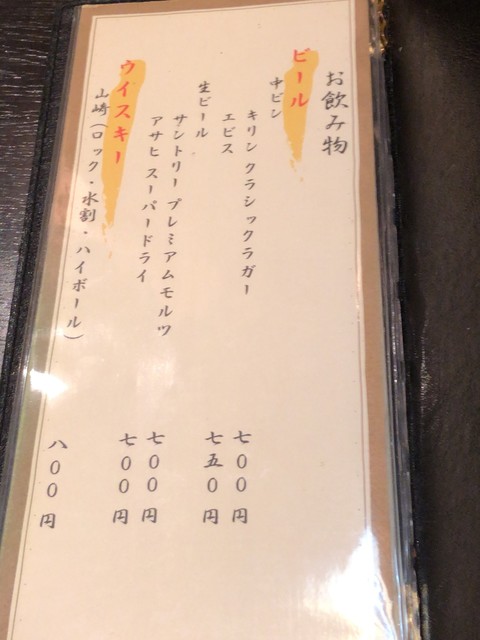 お飲み物
ビール
中ビン
キリン クラシックラガー 七〇〇円
エビス 七五〇円
生ビール
サントリー プレミアムモルツ 七〇〇円
アサヒ スーパードライ 七〇〇円
ウイスキー
山崎(ロック・水割・ハイボール) 八〇〇円